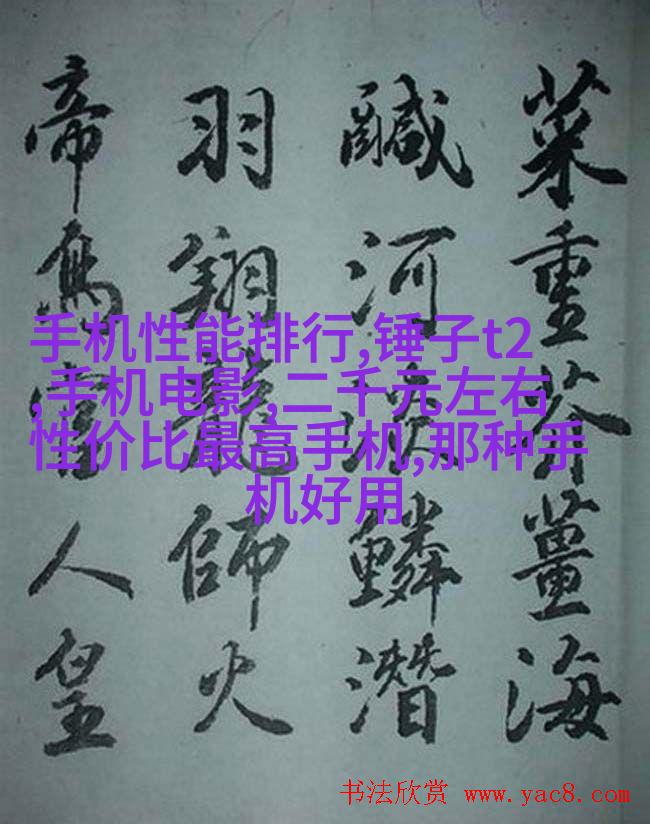 菜重芥薑海
鹹河淡鱗潛
羽翔龍師火
帝鳥官人皇
手机性能排行,锤子t2
,手机电影,二千元左右
性价比最高手机,那种手
机好用
书法欣赏 www.yac8.com